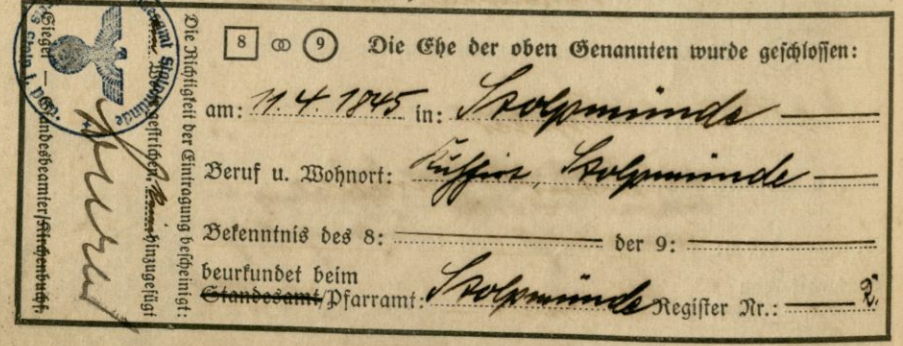 8 ⚭ 9 Die Ehe der oben Genannten wurde geschlossen:
am: 11.4.1845 in: Stolpmünde
Beruf u. Wohnort: Stolpmünde
Bekenntnis des 8: der 9:
beurkundet beim
Standesamt/Pfarramt: Stolpmünde Register Nr.: 2
Die Richtigkeit der Eintragung bescheinigt:
gestrichen, hinzugefügt
Siegel — Standesbeamter/Kirchenbuchf.